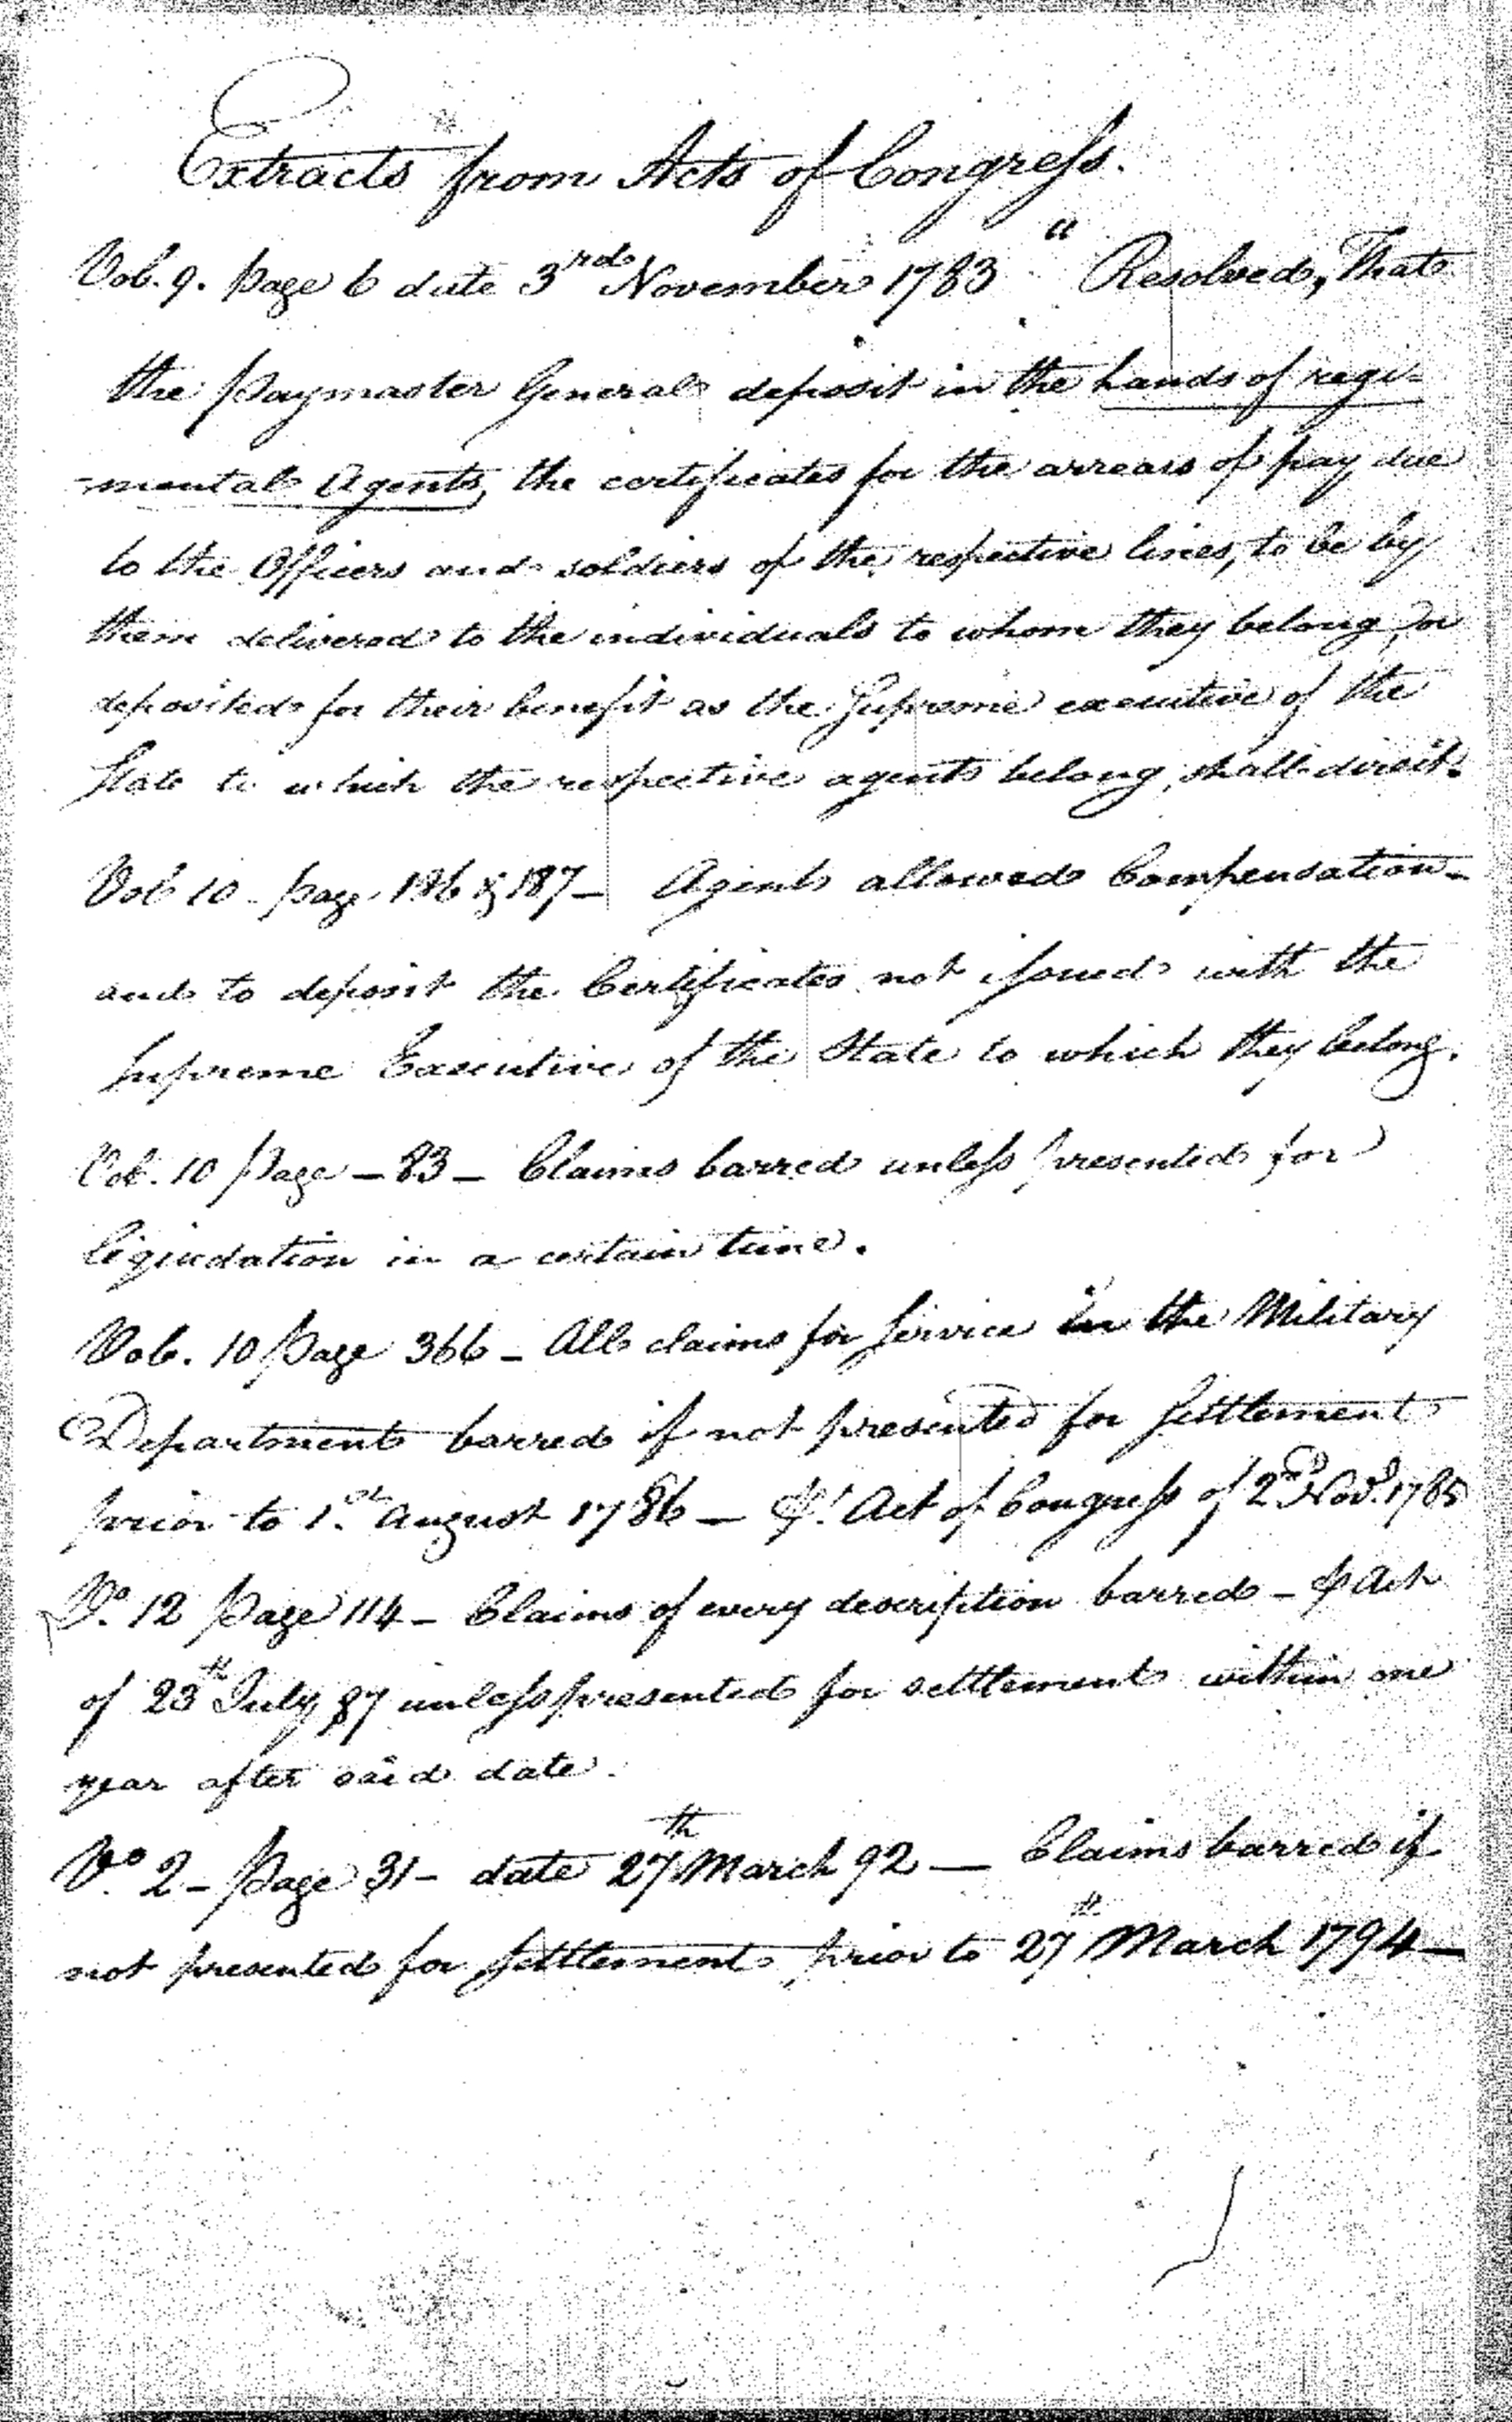 Extracts from Acts of Congress.
Vol. 9. page 6 date 3rd November 1783 " Resolved, That
the Paymaster General deposit in the hands of regi-
-mental Agents, the certificates for the arrears of pay due
to the Officers and soldiers of the respective lines, to be by
them delivered to the individuals to whom they belong, or
deposited for their benefit as the Supreme executive of the
State to which the respective agents belong, shall direct.
Vol 10 - page 186 & 187 - Agents allowed Compensation -
and to deposit the Certificates not issued with the
Supreme Executive of the State to which they belong.
Vol. 10 Page - 83 - Claims barred unless presented for
liquidation in a certain time.
Vol. 10 Page 366 - All claims for Service in the Military
Department barred if not presented for Settlement
prior to 1st August 1786 - Pr. Act of Congress of 2nd Novr. 1785
Vo. 12 Page 114 - Claims of every description barred - P Act
of 23th July 87 unless presented for settlement within one
year after said date.
Vo 2 - Page 31 - date 27th March 92 — Claims barred if
not presented for Settlement prior to 27th March 1794 —